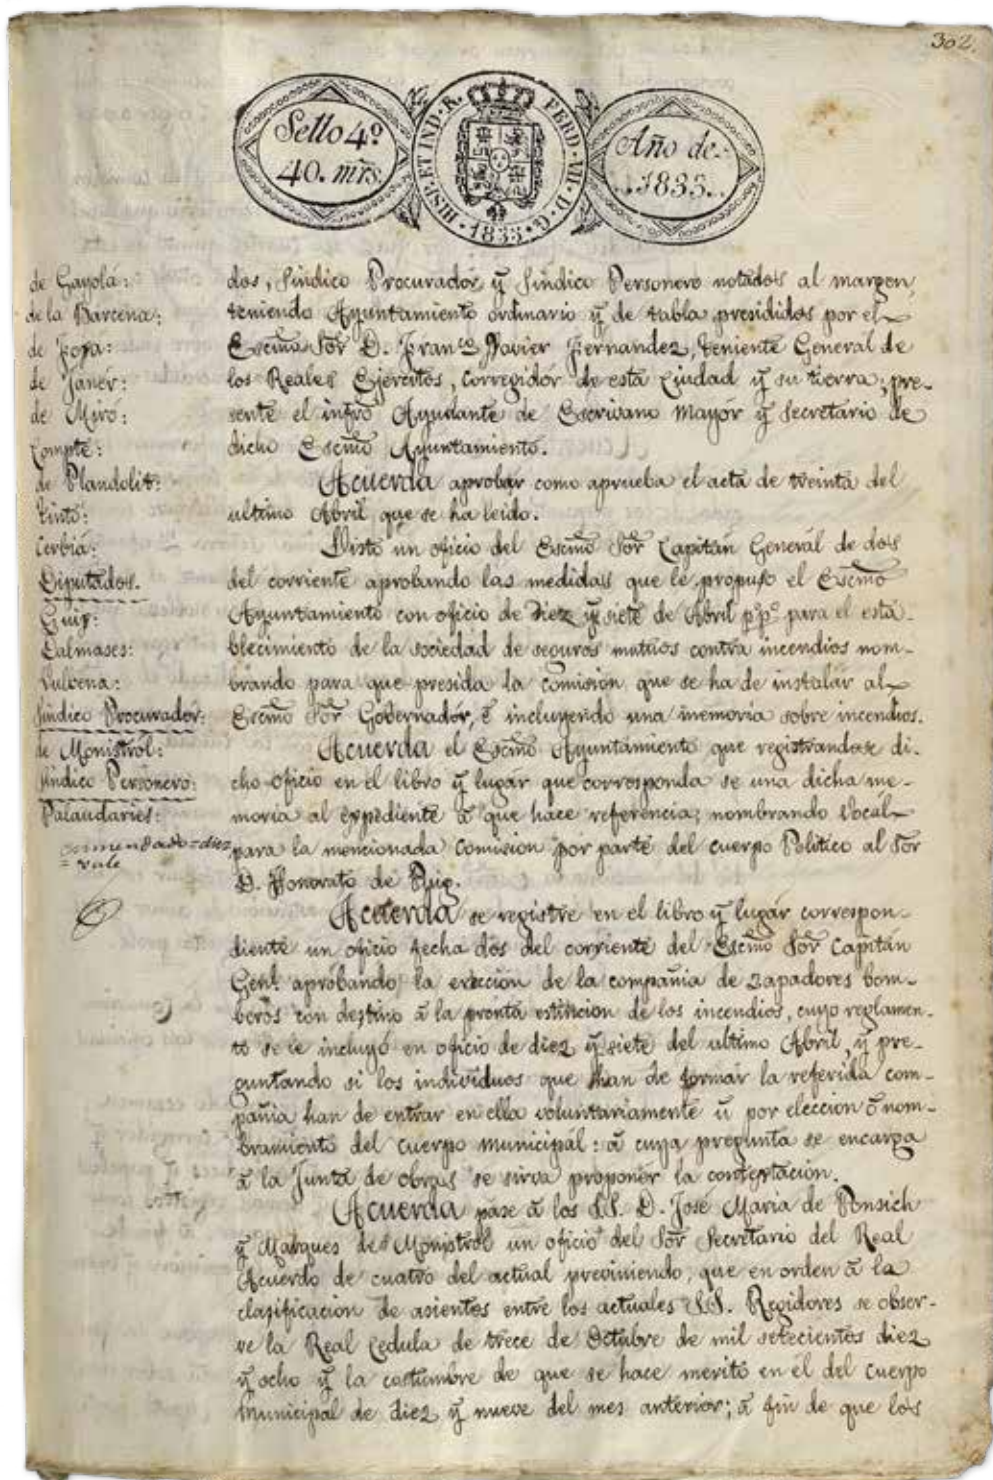 302.
Sello 4º
40. mrs.
HISP. ET IND. R. FERD. VII. D. G. 1833
Año de
1833.
de Gayolá:
de la Barcena:
de Foxa:
de Janér:
de Miró:
Compte:
de Plandolit:
Pinto:
Cerbiá:
Diputados.
Puig:
Dalmases:
Vulbena:
Síndico Procuradór:
de Monistról:
Síndico Personero:
Palaudaries:
enmendado=diez
=vale
dos, Síndico Procuradór, y Síndico Personero notados al margen,
teniendo Ayuntamiento ordinario y de tabla presididos por el
Escmo. Sor. D. Franco. Javier Fernandez, teniente General de
los Reales Ejércitos, corregidór de esta Ciudad y su tierra; pre-
sente el infro. Ayudante de Escrivano mayór y secretario de
dicho Escmo. Ayuntamiento.
Acuerda aprobar como aprueba el acta de treinta del
ultimo Abril que se ha leido.
Visto un oficio del Escmo. Sor. Capitán Generál de dos
del corriente aprobando las medidas que le propuso el Escmo.
Ayuntamiento con oficio de diez y siete de Abril p.º p.º para el esta-
blecimiento de la sociedad de seguros mutuos contra incendios nom-
brando para que presida la comision que se ha de instalár al
Escmo. Sor. Gobernadór, é incluyendo una memoria sobre incendios.
Acuerda el Escmo. Ayuntamiento que registrandose di-
cho oficio en el libro y lugar que corresponda se una dicha me-
moria al expediente á que hace referencia; nombrando vocal
para la mencionada comision por parte del cuerpo Politico al Sor.
D. Honorato de Puig.
Acuerda se registre en el libro y lugár correspon-
diente un oficio fecha dos del corriente del Escmo. Sor. Capitán
Genl. aprobando la erección de la compañia de zapadores bom-
beros con destino á la pronta estincion de los incendios, cuyo reglamen-
to se le incluyó en oficio de diez y siete del ultimo Abril, y pre-
guntando si los individuos que han de formar la referida com-
pañia han de entrar en ella voluntariamente ú por eleccion ó nom-
bramiento del cuerpo municipál: á cuya pregunta se encarga
á la Junta de obras se sirva proponer la contestación.
Acuerda páse á los SS. D. José Maria de Ponsich
y Marques de Monistrol un oficio del Sor. Secretario del Real
Acuerdo de cuatro del actual previniendo, que en orden á la
clasificacion de asientos entre los actuales SS. Regidores se obser-
ve la Real Cedula de trece de Octubre de mil setecientos diez
y ocho y la costumbre de que se hace merito en el del cuerpo
Municipal de diez y nueve del mes anterior; á fin de que los